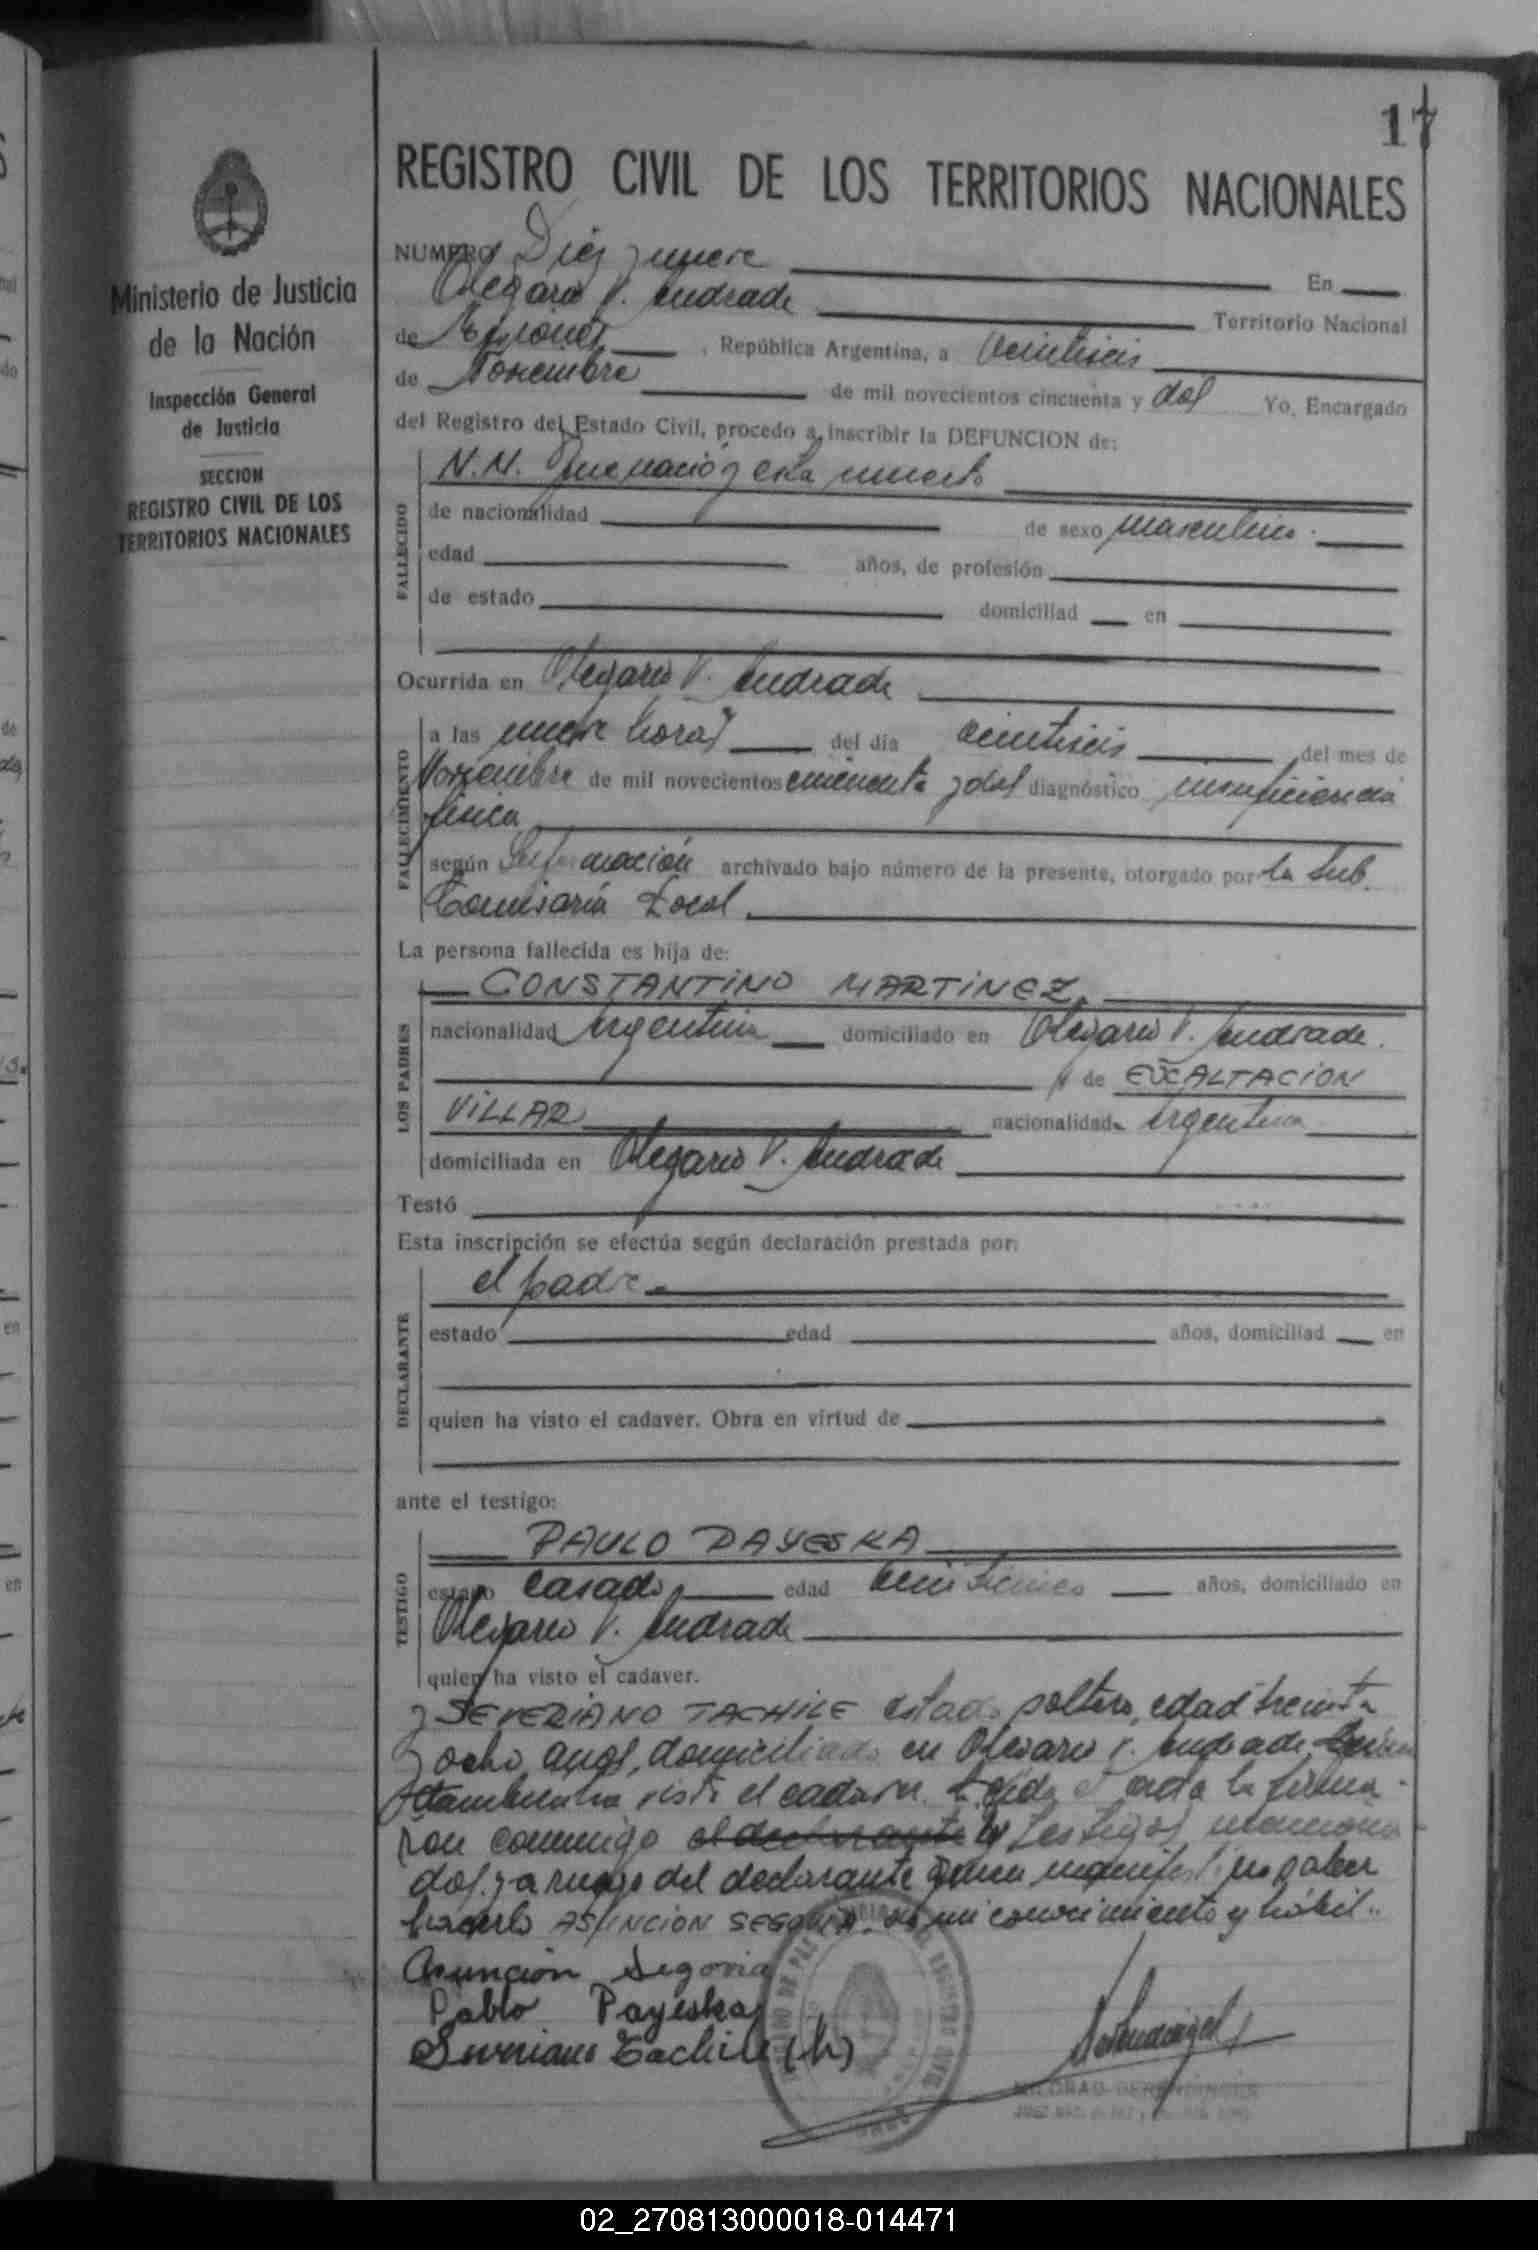 17
REGISTRO CIVIL DE LOS TERRITORIOS NACIONALES
Ministerio de Justicia
de la Nación
Inspección General
de Justicia
SECCION
REGISTRO CIVIL DE LOS
TERRITORIOS NACIONALES
NUMERO Diez y nueve En
Olegario V. Andrade Territorio Nacional
de Misiones, República Argentina, a veintiseis
de Noviembre de mil novecientos cincuenta y dos Yo, Encargado
del Registro del Estado Civil, procedo a inscribir la DEFUNCION de:
FALLECIDO
N.N. que nació y está muerto
de nacionalidad de sexo masculino.
edad años, de profesión
de estado domiciliad en
Ocurrida en Olegario V. Andrade
FALLECIMIENTO
a las nueve horas del día veintiseis del mes de
Noviembre de mil novecientos cincuenta y dos diagnóstico insuficiencia
física
según Información archivado bajo número de la presente, otorgado por la Sub.
Comisaría Local.
La persona fallecida es hija de:
LOS PADRES
CONSTANTINO MARTINEZ,
nacionalidad argentina domiciliado en Olegario V. Andrade.
y de EXALTACION
VILLAR nacionalidad argentina
domiciliada en Olegario V. Andrade
Testó
Esta inscripción se efectúa según declaración prestada por:
DECLARANTE
el padre.
estado edad años, domiciliad en
quien ha visto el cadaver. Obra en virtud de
ante el testigo:
TESTIGO
PAULO PAYESKA
estado casado, edad años, domiciliado en
Olegario V. Andrade
quien ha visto el cadaver.
y SEVERIANO TACHILE estado soltero, edad treinta
y ocho años, domiciliado en Olegario V. Andrade
tambien ha visto el cadaver. Leida el acta la firma-
ron conmigo el declarante los testigos menciona-
dos. y a ruego del declarante quien manifestó no saber
hacerlo ASUNCION SEGOVIA. de mi conocimiento y hábil..
Asunción Segovia
Pablo Payeska
Severiano Tachile (h)
02_270813000018-014471